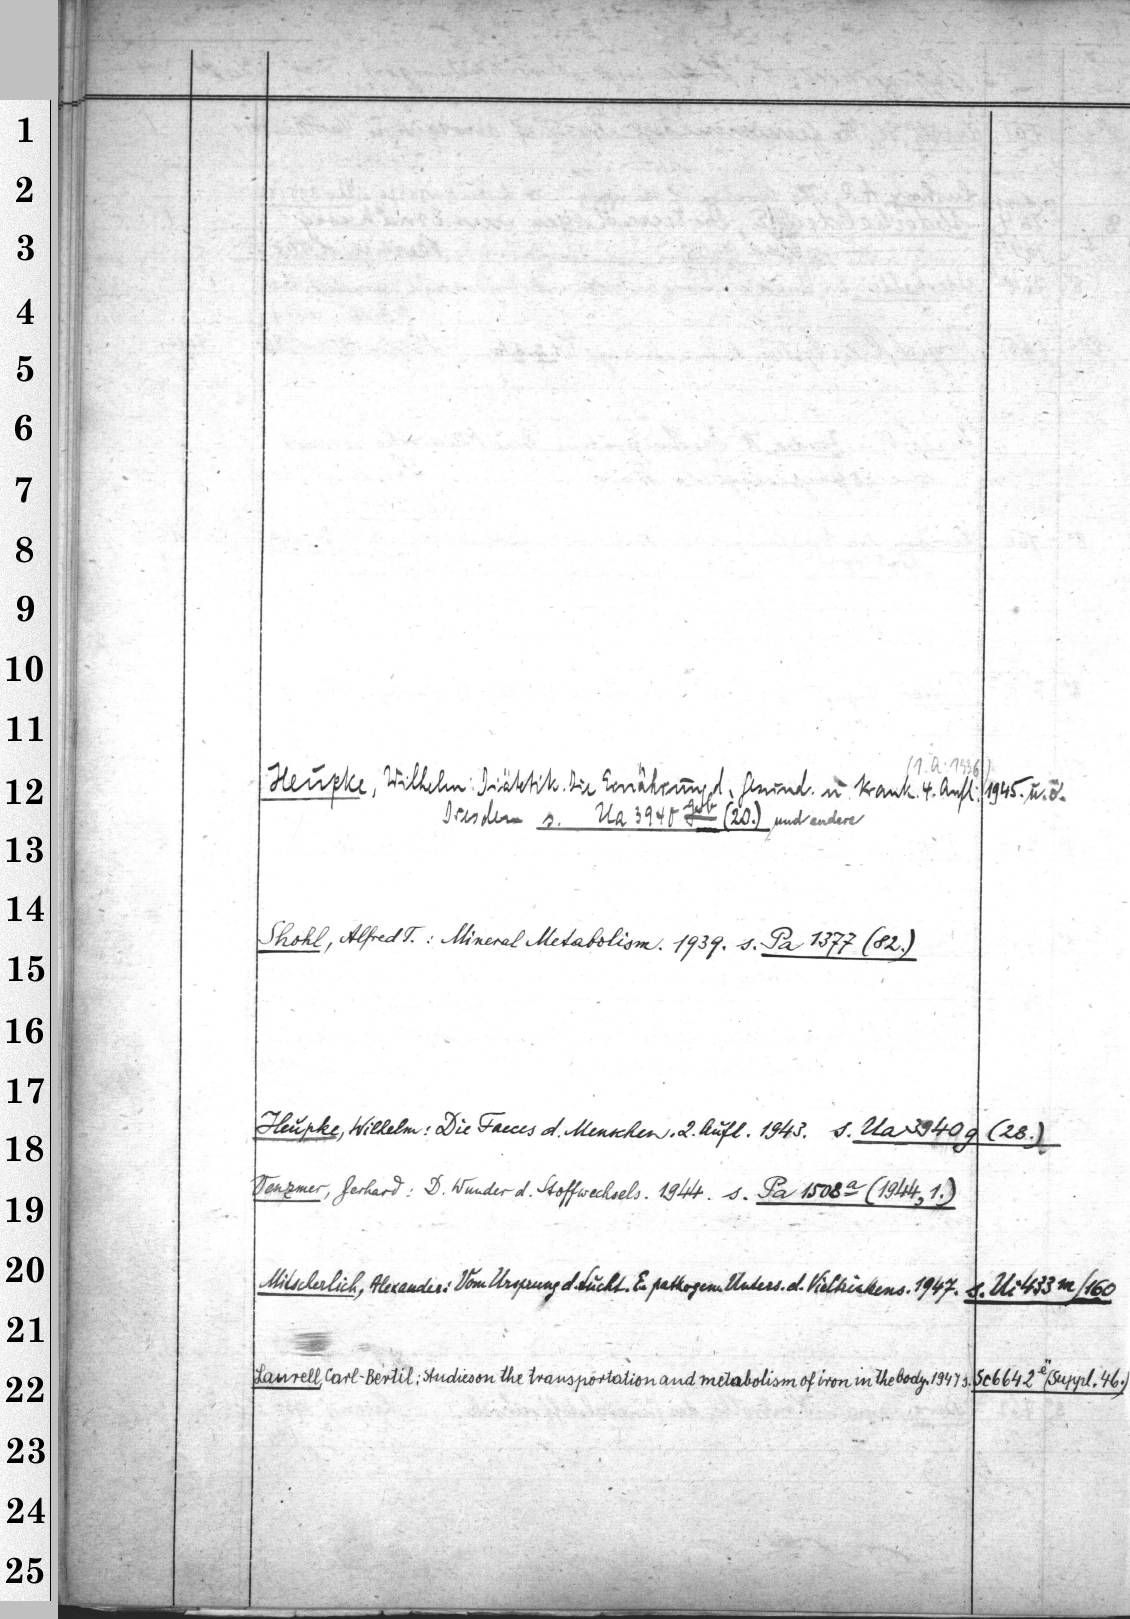 1
2
3
4
5
6
7
8
9
10
11
(1. A. 1936)
12 Heupke, Wilhelm: Diätetik. Die Ernährung d. Gesund. u. Krank. 4. Aufl. 1945. u. ö.
Dresden s. Ua 3940 (20.) und andere
13
14
Shohl, Alfred T.: Mineral Metabolism. 1939. s. Pa 1377 (82.)
15
16
17
Heupke, Wilhelm: Die Faeces d. Menschen. 2. Aufl. 1943. s. Ua 3940 g (28.)
18
Venzmer, Gerhard: D. Wunder d. Stoffwechsels. 1944. s. Pa 1508 a (1944, 1.)
19
20
Mitscherlich, Alexander: Vom Ursprung d. Sucht. E. pathogen. Unters. d. Vieltrinkens. 1947. s. Ui 433 m/160
21
Laurell, Carl-Bertil: Studies on the transportation and metabolism of iron in the body. 1947 s. Sc 6642 (Suppl. 46.)
22
23
24
25